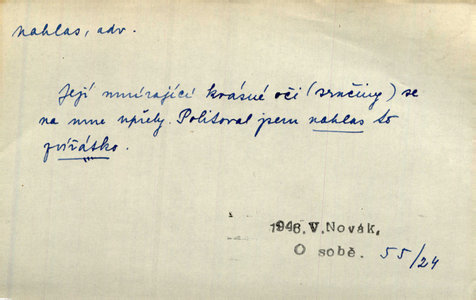 nahlas, adv.
Její umírající krásné oči (srnčiny) se
na mne upřely. Politoval jsem nahlas to
zvířátko.
1946.V.Novák,
O sobě. 55/24